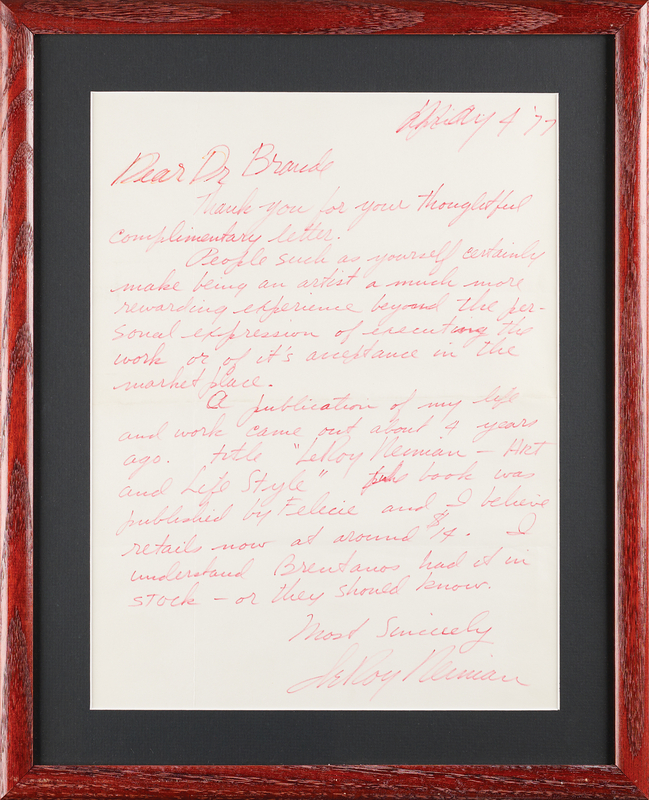 4 '77
Dear Dr Brande
Thank you for your thoughtful
complimentary letter.
People such as yourself certainly
make being an artist a much more
rewarding experience beyond the per-
sonal expression of executing the
work or of it's acceptance in the
market place.
A publication of my life
and work came out about 4 years
ago. title "LeRoy Neiman – Art
and Life Style" book was
published by Felicie and I believe
retails now at around $ . I
understand Brentanos had it in
stock – or they should know.
Most Sincerely
LeRoy Neiman